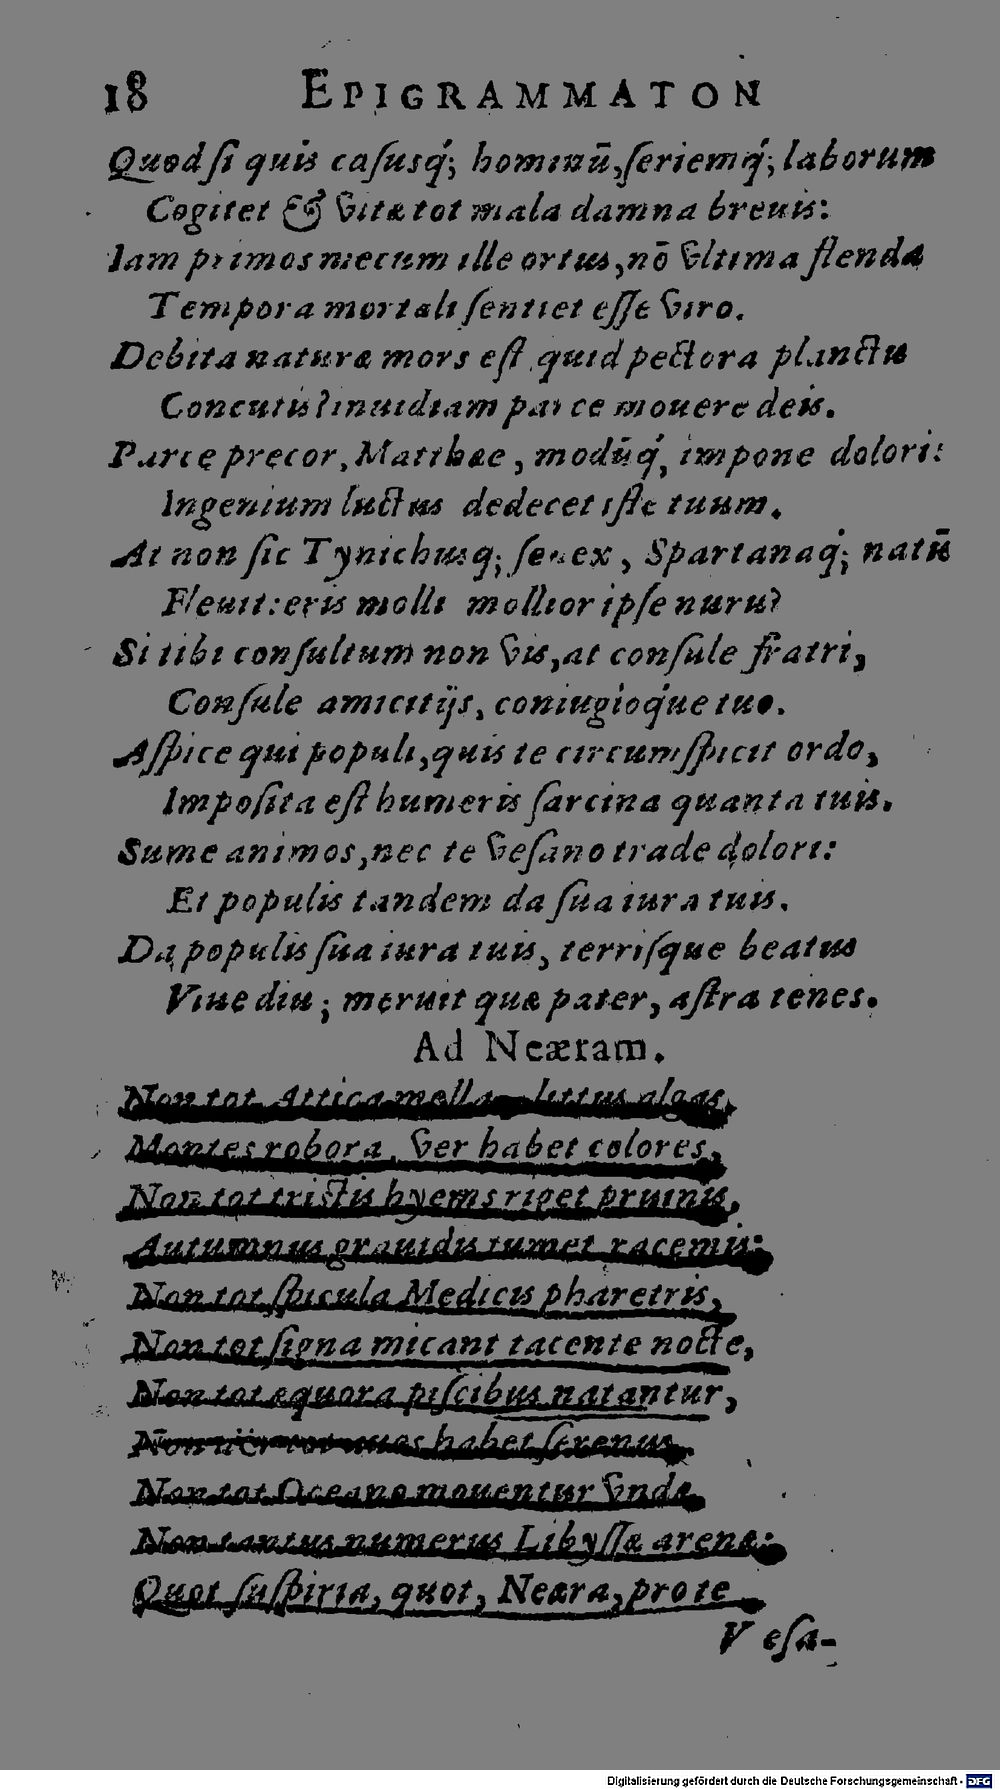 18 EPIGRAMMATON
Quod ſi quis caſusq́; hominū, ſeriemq́; laborum
Cogitet & vitæ tot mala damna breuis:
Iam primos mecum ille ortus, nō vltima flenda
Tempora mortali ſentiet eſſe viro.
Debita naturæ mors eſt, quid pectora planctu
Concutis? inuidiam parce mouere deis.
Parce precor, Matthæe, modūq́, impone dolori:
Ingenium luctus dedecet iſte tuum.
At non ſic Tynichusq; ſenex, Spartanaq́; natū
Fleuit: eris molli mollior ipſe nuru?
Si tibi conſultum non vis, at conſule fratri,
Conſule amicitijs, coniugioq́ue tuo.
Aſpice qui populi, quis te circumſpicit ordo,
Impoſita eſt humeris ſarcina quanta tuis.
Sume animos, nec te veſano trade dolori:
Et populis tandem da ſua iura tuis.
Da populis ſua iura tuis, terriſque beatus
Viue diu; meruit quæ pater, aſtra tenes.
Ad Neæram.
Non tot Attica mella, littus algas,
Montes robora, ver habet colores,
Non tot triſtis hyems riget pruinis,
Autumnus grauidis tumet racemis:
Non tot ſpicula Medicis pharetris,
Non tot ſigna micant tacente nocte,
Non tot æquora piſcibus natantur,
Non aër tot aues habet ſerenus,
Non tot Oceano mouentur vndæ,
Non tantus numerus Libyſſæ arenæ:
Quot ſuſpiria, quot, Neæra, pro te
Veſa-
Digitalisierung gefördert durch die Deutsche Forschungsgemeinschaft - DFG